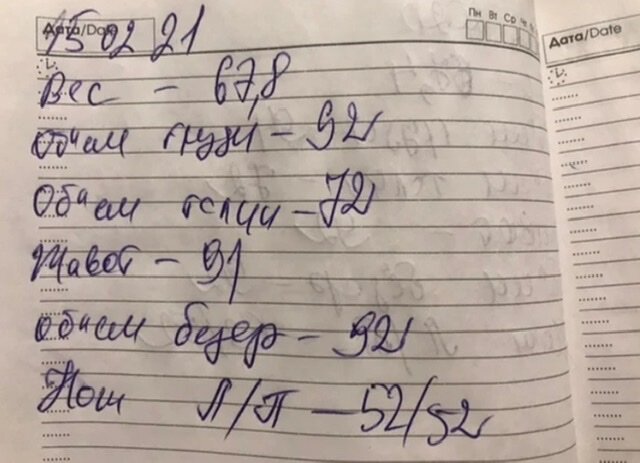 Дата/Date Пн Вт Ср Чт
15 02 21
Дата/Date
Вес - 67,8
Объем груди - 92
Объем талии - 72
Живот - 91
Объем бедер - 92
Ног Л/П - 52/52